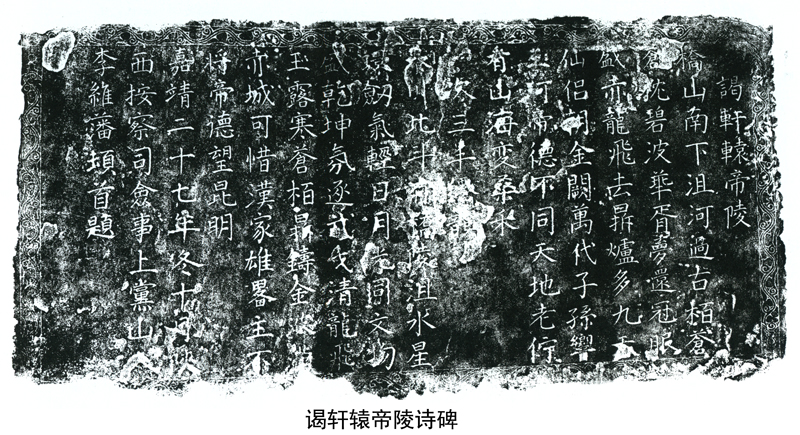 謁軒轅帝陵
橋山南下沮河過古栢蒼
蒼枕碧波華胥夢還冠服
盛赤龍飛去鼎爐多九天
仙侶朝金闕萬代子孫響
玉珂帝德不同天地老佇
看山海変桑禾
次三年
川北斗橋陵沮水星
劔氣輕日月同文物
乾坤氛逐清龍飛
玉露寒蒼栢鼎鑄金
赤城可惜漢家雄畧主不
將帝德望昆明
嘉靖二十七年終十月陝
西按察司僉事上黨山
李維藩頓首題
谒轩辕帝陵诗碑